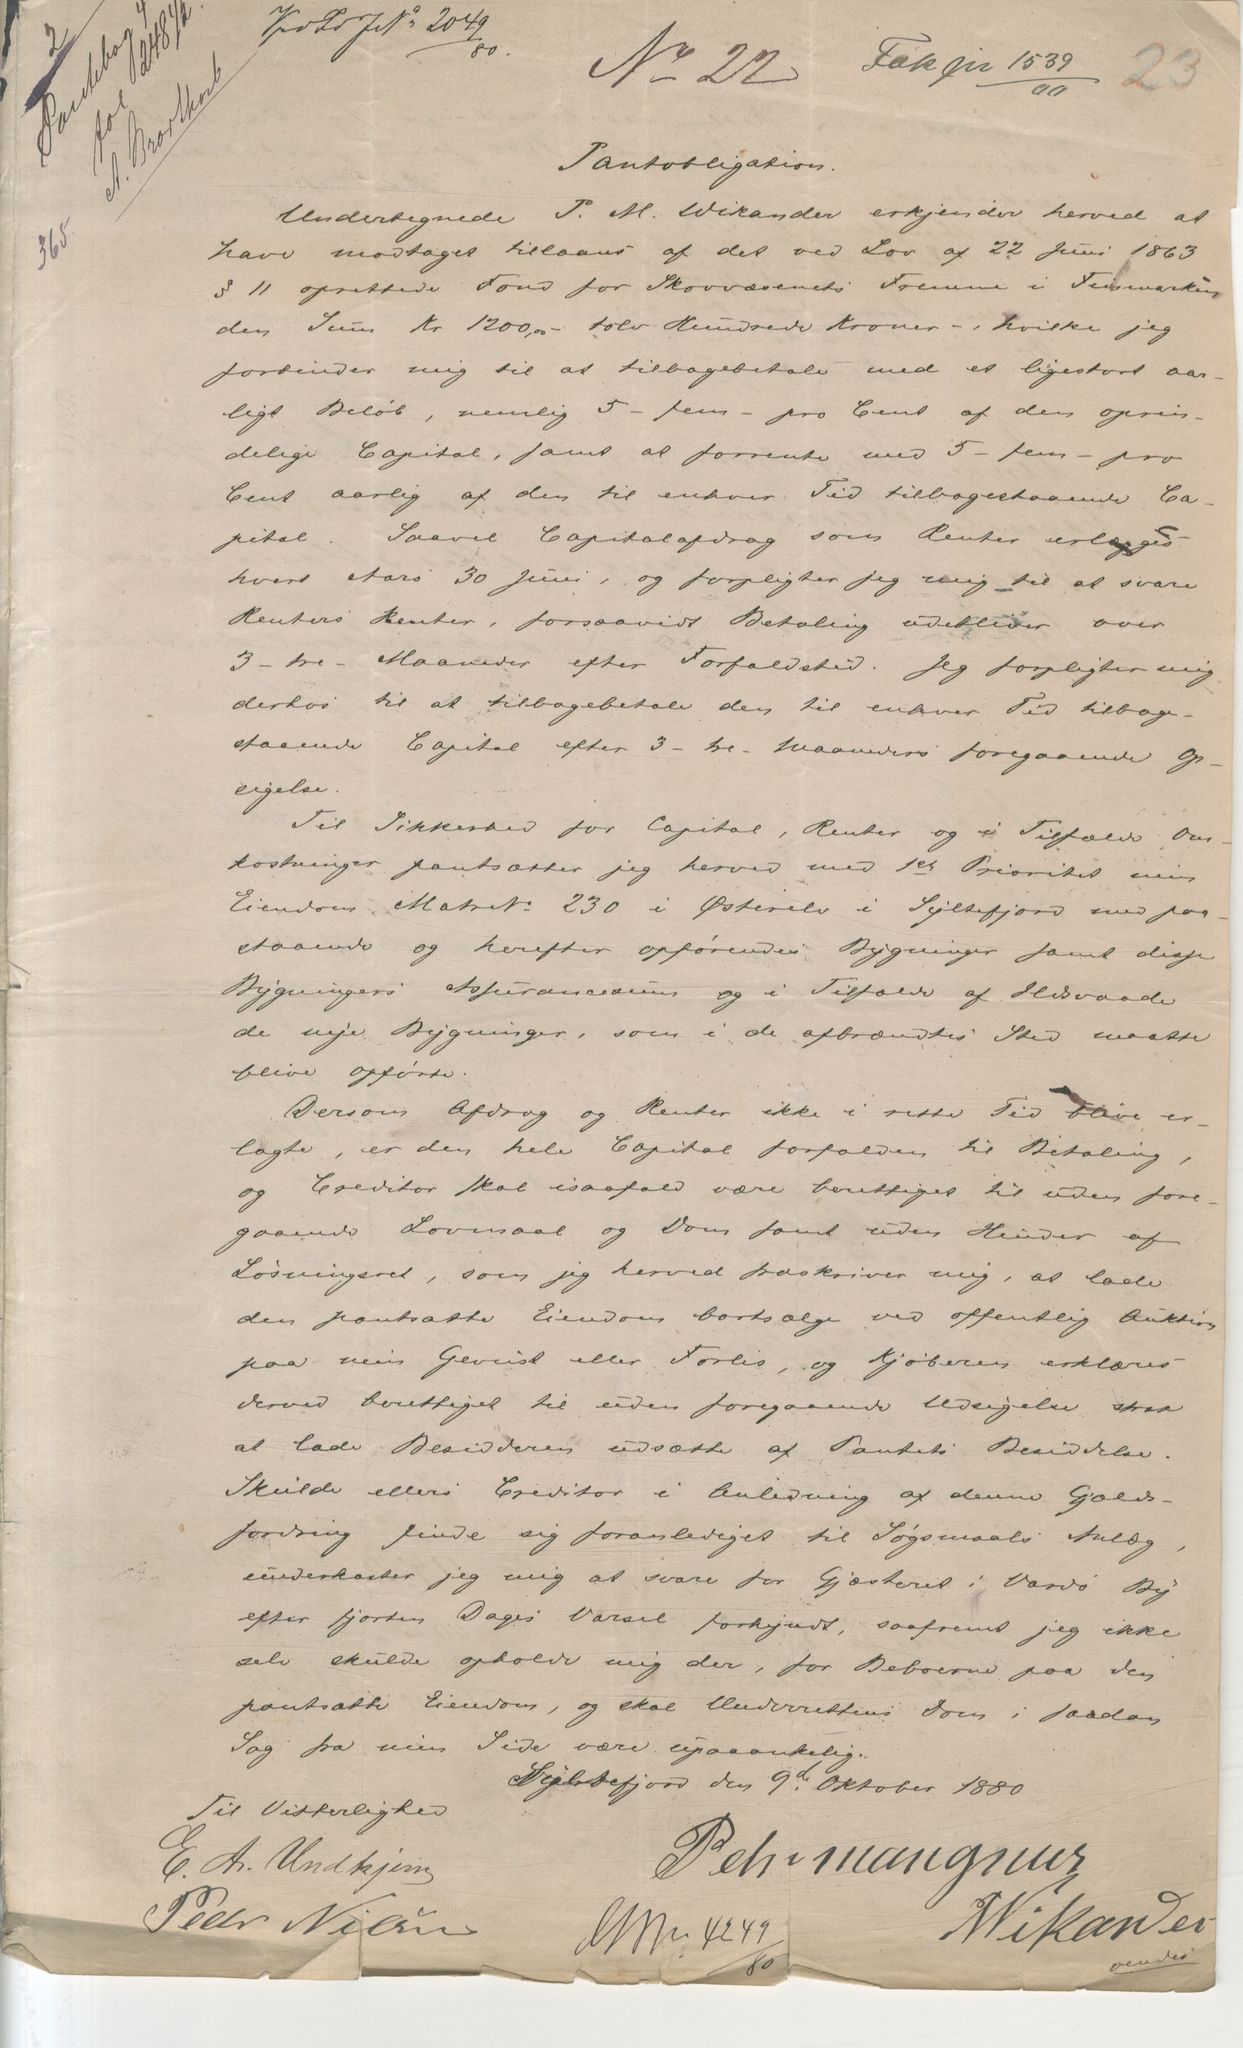 2
Pantebog 4
fol 248 1/2
A. Brodtkorb
365.
J No 2049/80.
No 22
Fak jn 1539/00
23
Pantobligation.
Undertegnede P. M. Wikander erkjender herved at
have modtaget tillaans af det ved Lov af 22 Juni 1863
§ 11 oprettede Fond for Skovvæsenets Fremme i Finmarken
den Sum Kr 1200,00 - tolv Hundrede Kroner -, hvilke jeg
forbinder mig til at tilbagebetale med et ligestort aar-
ligt Beløb, nemlig 5 - fem - pro Cent af den oprin-
delige Capital, samt at forrente med 5 - fem - pro
Cent aarlig af den til enhver Tid tilbagestaaende Ca-
pital. Saavel Capitalafdrag som Renter erlægges
hvert Aars 30 Juni, og forpligter jeg mig til at svare
Renters Renter, forsaavidt Betaling udebliver over
3 - tre - Maaneder efter Forfaldstid. Jeg forpligter mig
derhos til at tilbagebetale den til enhver Tid tilbage-
staaende Capital efter 3 - tre - Maaneders foregaaende Op-
sigelse.
Til Sikkerhed for Capital, Renter og i Tilfælde Om-
kostninger pantsætter jeg herved med 1ste Prioritet min
Eiendom Matr. No 230 i Østerelv i Syltefjord med paa-
staaende og herefter opførendes Bygninger samt disse
Bygningers Assurancesum og i Tilfælde af Ildsvaade
de nye Bygninger, som i de afbrændtes Sted maatte
blive opførte.
Dersom Afdrag og Renter ikke i rette Tid blive er-
lagte, er den hele Capital forfalden til Betaling,
og Creditor skal isaafald være berettiget til uden fore-
gaaende Lovmaal og Dom samt uden Hinder af
Løsningsret, som jeg herved fraskriver mig, at lade
den pantsatte Eiendom bortsælge ved offentlig Auktion
paa min Gevinst eller Forlis, og Kjøberen erklæres
derved berettiget til uden foregaaende Udsigelse strax
at lade Besidderen udsætte af Pantets Besiddelse.
Skulde ellers Creditor i Anledning af denne Gjælds-
fordring finde sig foranlediget til Søgsmaals Anlæg,
underkaster jeg mig at svare for Gjæsteret i Vardø By
efter fjorten Dages Varsel forkyndt, saafremt jeg ikke
selv skulde opholde mig der, for Beboerne paa den
pantsatte Eiendom, og skal Underrettens Dom i saadan
Sag fra min Side være upaaankelig.
Syltefjord den 9de Oktober 1880
Til Vitterlighed
E. A. Undhjem
Peder Nilsen
Pehr mangnuz
Wikander
4249/80
vendes